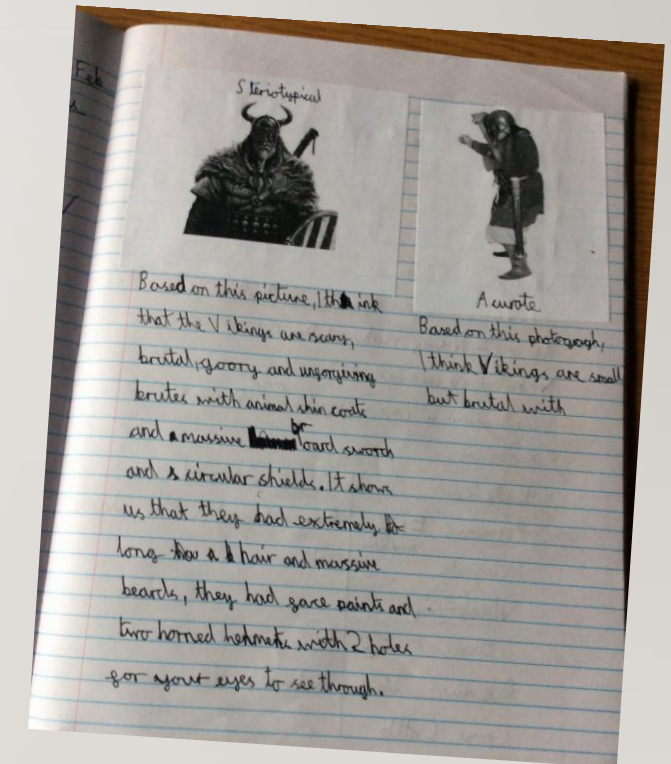 Feb
Steriotypical
Acurate
Based on this picture, I think
that the Vikings are scary,
brutal, goory and unforgiving
brutes with animal skin coats
and a massive broard sword
and circular shields. It shows
us that they had extremely
long hair and massive
beards, they had face paints and
two horned helmets with 2 holes
for your eyes to see through.
Based on this photogogh,
I think Vikings are small
but brutal with